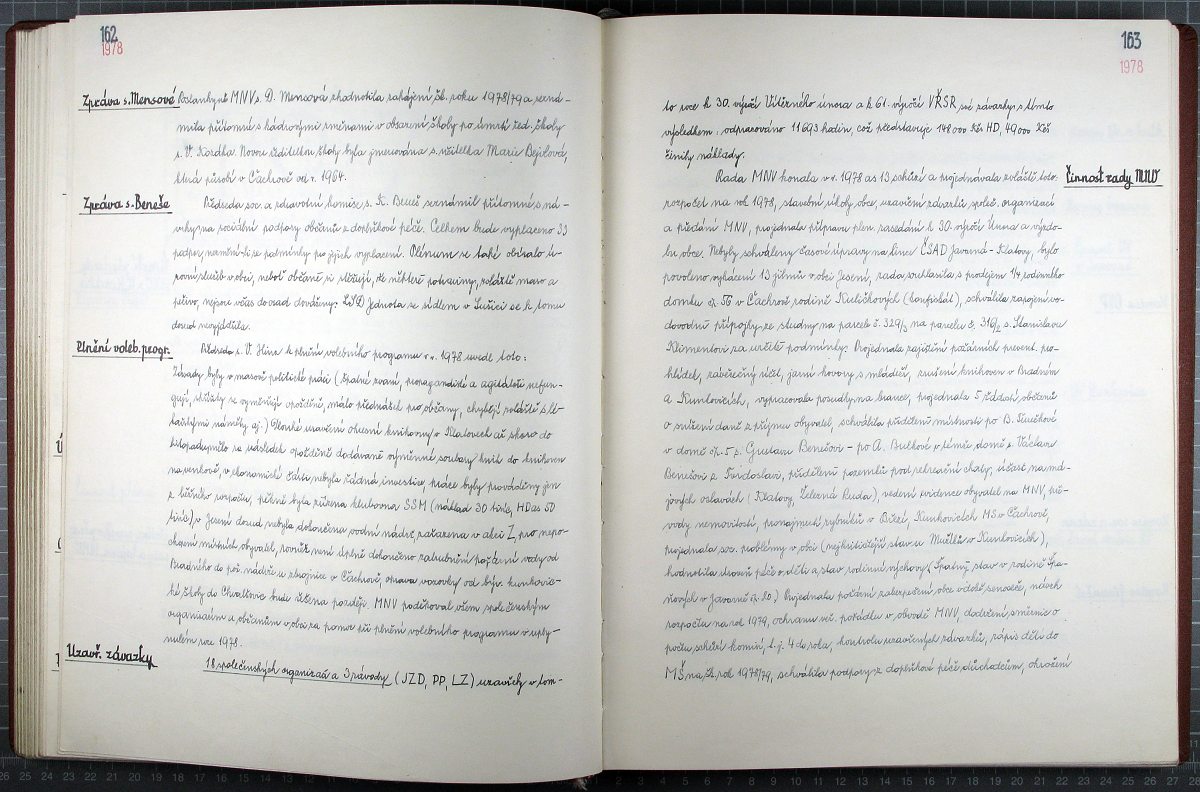 162
1978
Zpráva s. Mensové Poslankyně MNV s. D. Mensová zhodnotila zahájení šk. roku 1978/79 a sezná-
mila přítomné s kádrovými změnami v obsazení školy po úmrtí řed. školy
s. V. Kordíka. Novou ředitelkou školy byla jmenována s. učitelka Marie Bejvlová,
která působí v Čachrově od r. 1964.
Zpráva s. Beneše Předseda soc. a zdravotní komise s. K. Beneš seznámil přítomné s ná-
vrhy na sociální podpory občanů z doplňkové péče. Celkem bude vyplaceno 33
podpor, nezmění-li se podmínky pro jejich vyplacení. Plénum se také obíralo ú-
rovní služeb v obci, neboť občané si stěžují, že některé potraviny, zvláště maso a
pečivo, nejsou včas do osad dováženy. LSD Jednota se sídlem v Sušici se k tomu
dosud nevyjádřila.
Plnění voleb. progr. Předseda s. V. Hůrka k plnění volebního programu v r. 1978 uvedl toto:
Závady byly v masově politické práci (špatné zvaní, propagandisté a agitátoři nefun-
gují, skříňky se vyměňují opožděně, málo přednášek pro občany, chybějí zvláště s lé-
kařskými náměty aj.) Dlouhé uzavření okresní knihovny v Klatovech až skoro do
listopadu mělo za následek opožděné dodávané výměnné soubory knih do knihoven
na venkově, v ekonomické části nebyla žádná investice, práce byly prováděny jen
z běžného rozpočtu, pěkně byla zřízena klubovna SSM (náklad 30 tis Kčs, HD as 50
tisíc), v Jesení dosud nebyla dokončena vodní nádrž zařazena v akci Z, pro nepo-
chopení místních obyvatel, rovněž není úplně dokončeno zatrubnění požární vody od
Bradného do pož. nádrže u zbrojnice v Čachrově, oprava vozovky od býv. kunkovic-
ké školy do Chvalšovic bude řešena později. MNV poděkoval všem společenským
organizacím a občanům v obci za pomoc při plnění volebního programu v uply-
nulém roce 1978.
Uzavř. závazky 18 společenských organizací a 3 závody (JZD, PP, LZ) uzavřely v tom-
163
1978
to roce k 30. výročí Vítězného února a k 61. výročí VŘSR své závazky s tímto
výsledkem: odpracováno 11 693 hodin, což představuje 148 000 Kčs HD, 49 000 Kčs
činily náklady.
Činnost rady MNV Rada MNV konala v r. 1978 as 13 schůzí a projednávala zvláště toto:
rozpočet na rok 1978, stavební úkoly obce, uzavření závazků společ. organizací
a předání MNV, projednala přípravu plen. zasedání k 30. výročí Února a výzdo-
bu obce. Nebyly schváleny časové úpravy na lince ČSAD Javorná - Klatovy, bylo
povoleno vykácení 13 jilmů v obci Jesení, rada souhlasila s prodejem 1/4 rodinného
domku čp. 56 v Čachrově rodině Kuličkových, schválila zapojení vo-
dovodní přípojky ze studny na parcele č. 329/3 na parcelu č. 316/2 s. Stanislavu
Klimentovi za určité podmínky. Projednala zajištění požárních prevent. pro-
hlídek, závěrečný účet, jarní hovory s mládeží, zrušení knihoven v Bradném
a Kunkovicích, vypracovala posudky na brance, projednala 5 žádostí občanů
o snížení daně z příjmu obyvatel, schválila přidělení místnosti po B. Turečkové
v domě čp. 5 s. Gustavu Benešovi - po A. Bulkové v témž domě s. Václavu
Benešovi z Tvrdoslavi, přidělení pozemků pod rekreační chaty, účast na má-
jových oslavách (Klatovy, Železná Ruda), vedení evidence obyvatel na MNV, pře-
vody nemovitostí, pronajmutí rybníků v Březí, Kunkovicích MS v Čachrově,
projednala soc. problémy v obci (nejkritičtější stav u Mužíků v Kunkovicích),
hodnotila úroveň péče o děti a stav rodinné výchovy. (Špatný stav v rodině
v Javorné čp. 80.) Projednala požární zabezpečení obce v době senoseče, návrh
rozpočtu na rok 1979, ochranu veř. pořádku v obvodě MNV, dodržení směrnic o
počtu schůzí komisí, t. j. 4 do roka, kontrolu uzavřených závazků, zápis dětí do
MŠ na šk. rok 1978/79, schválila podpory z doplňkové péče důchodcům, ohrožení